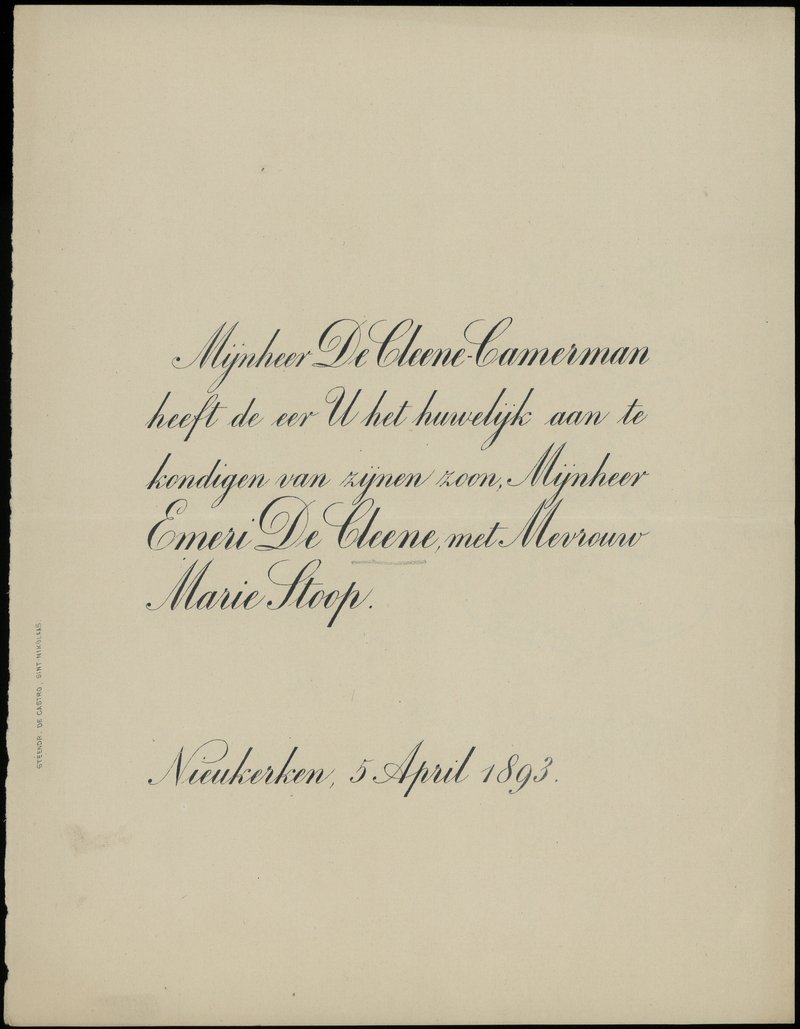 Mijnheer De Cleene-Camerman
heeft de eer U het huwelijk aan te
kondigen van zijnen zoon, Mijnheer
Emeri De Cleene, met Mevrouw
Marie Stoop.
Nieukerken, 5 April 1893.
STEENDR. DE CASTRO, SINT NIKOLAAS